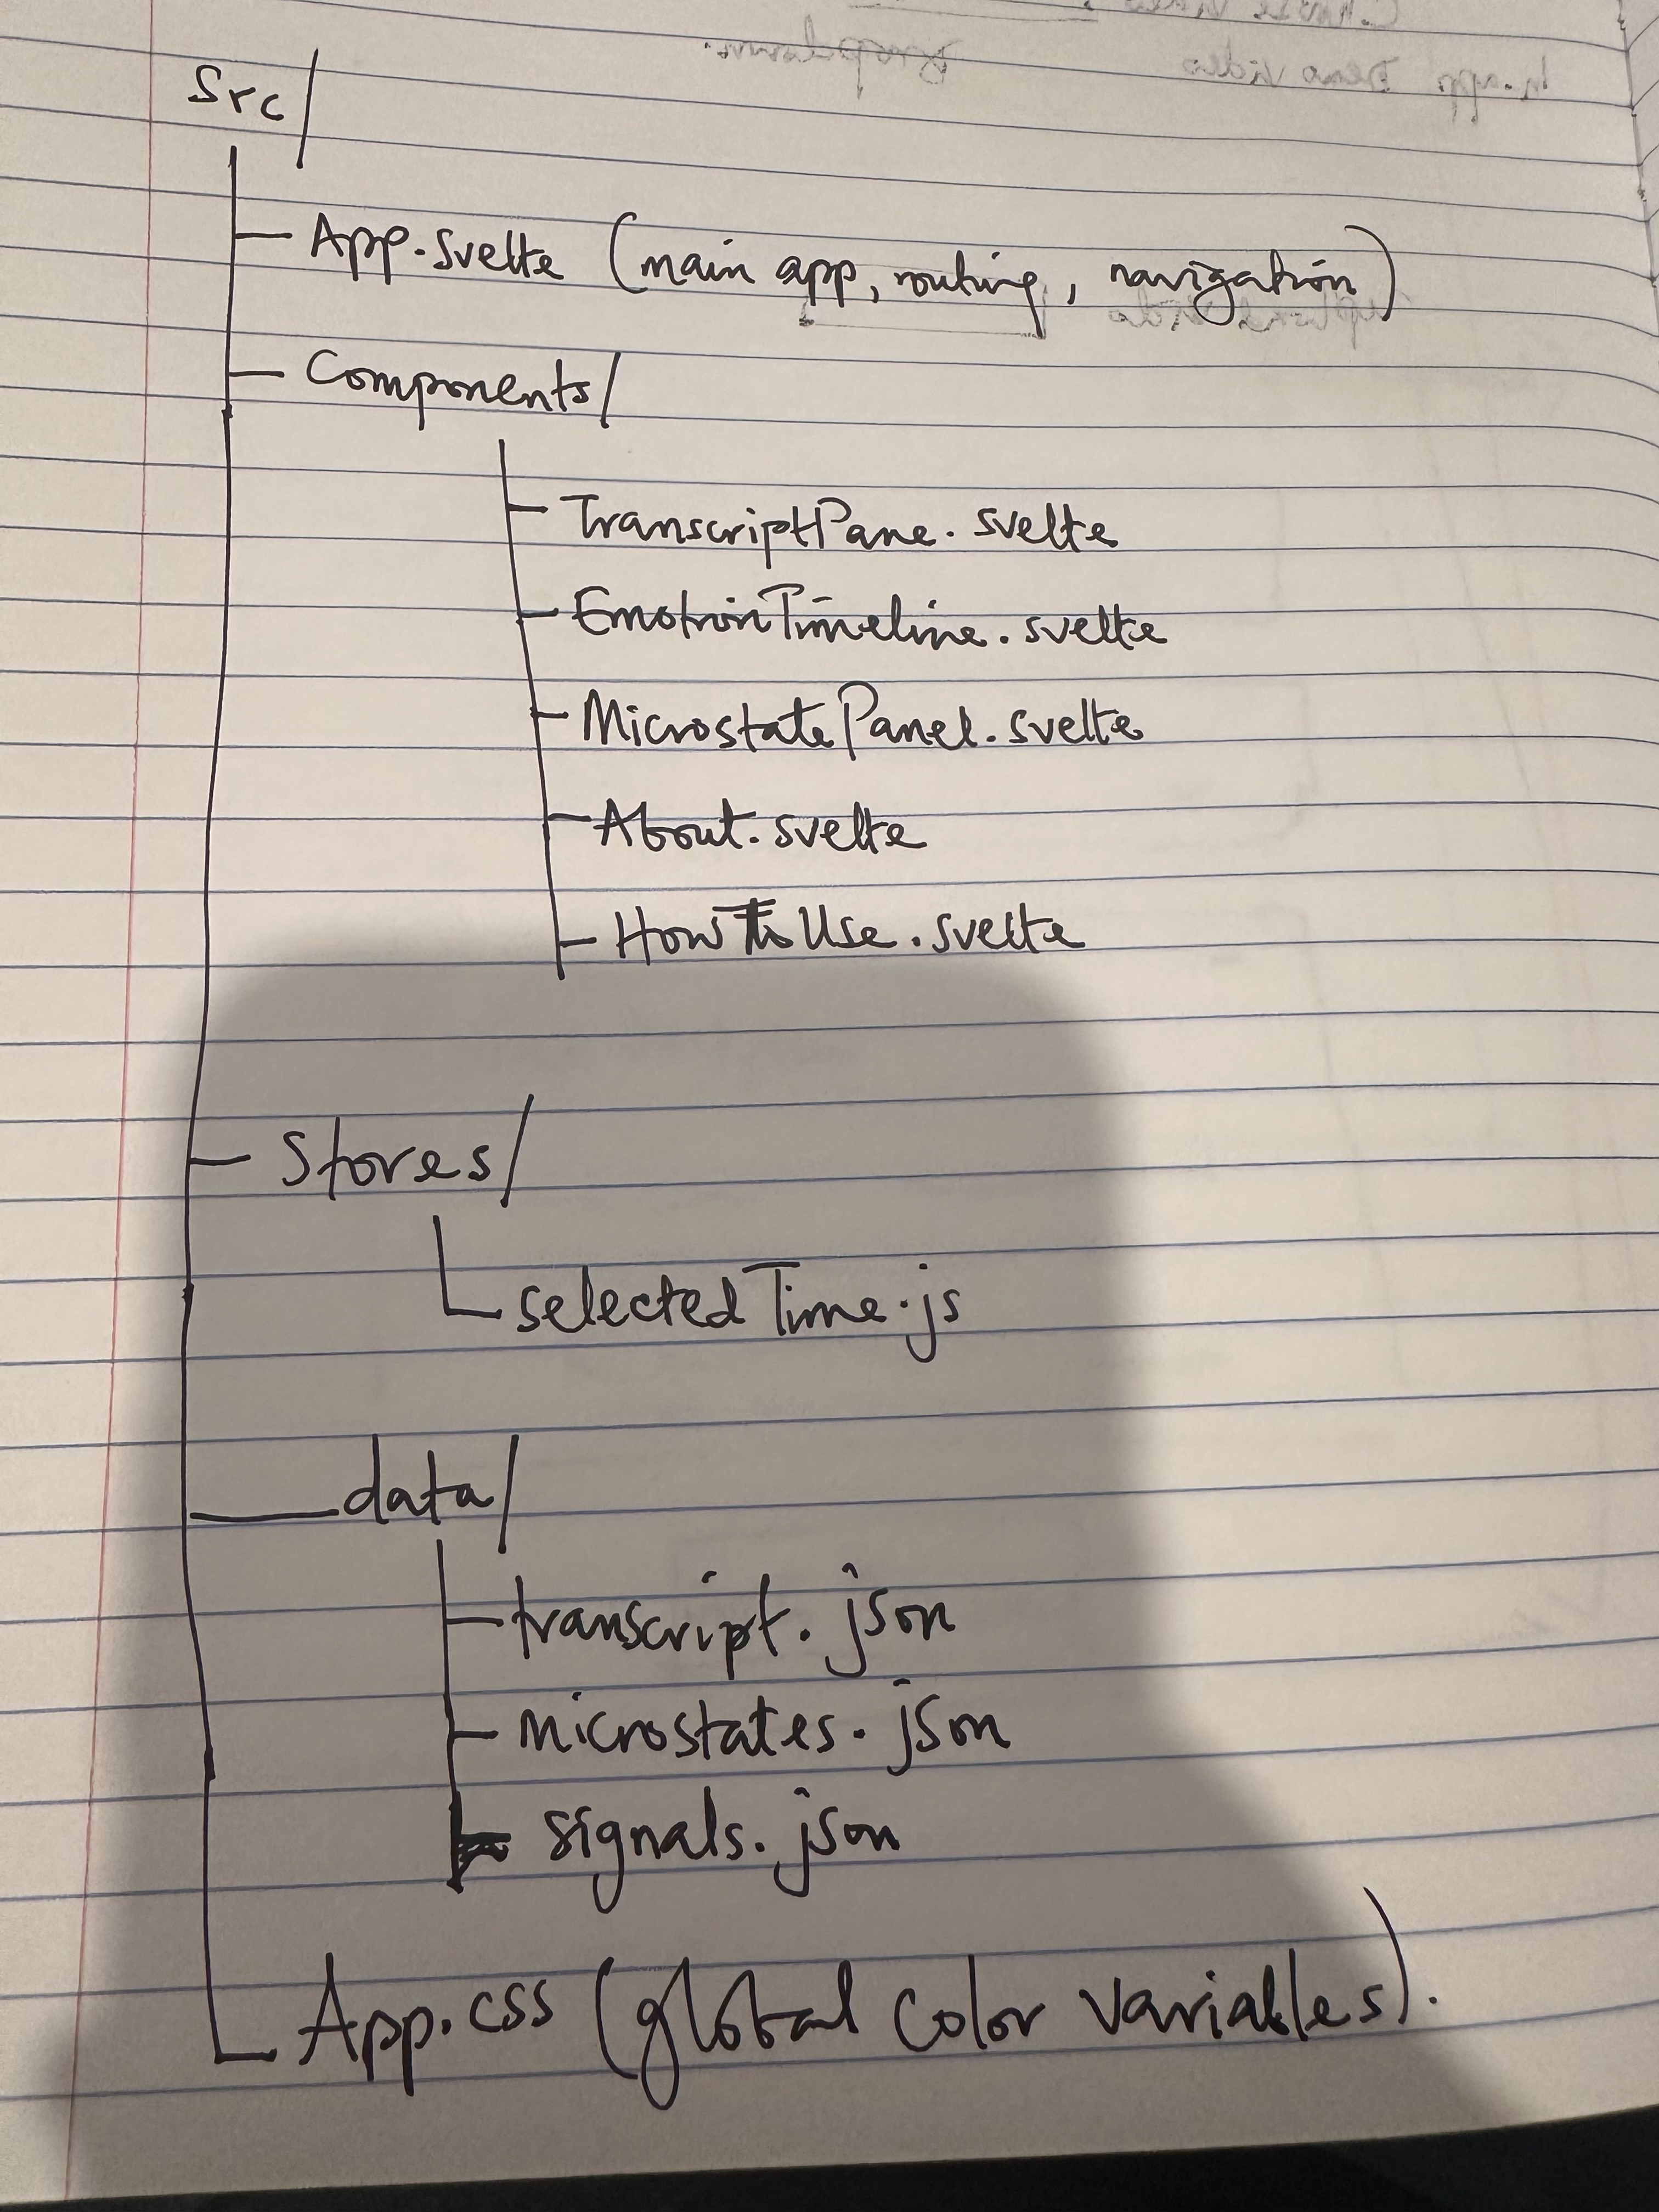 Src/
App.svelte (main app, routing, navigation)
Components/
TranscriptPane.svelte
EmotionTimeline.svelte
MicrostatePanel.svelte
About.svelte
HowToUse.svelte
Stores/
selectedTime.js
data/
transcript.json
microstates.json
signals.json
App.css (global color variables).